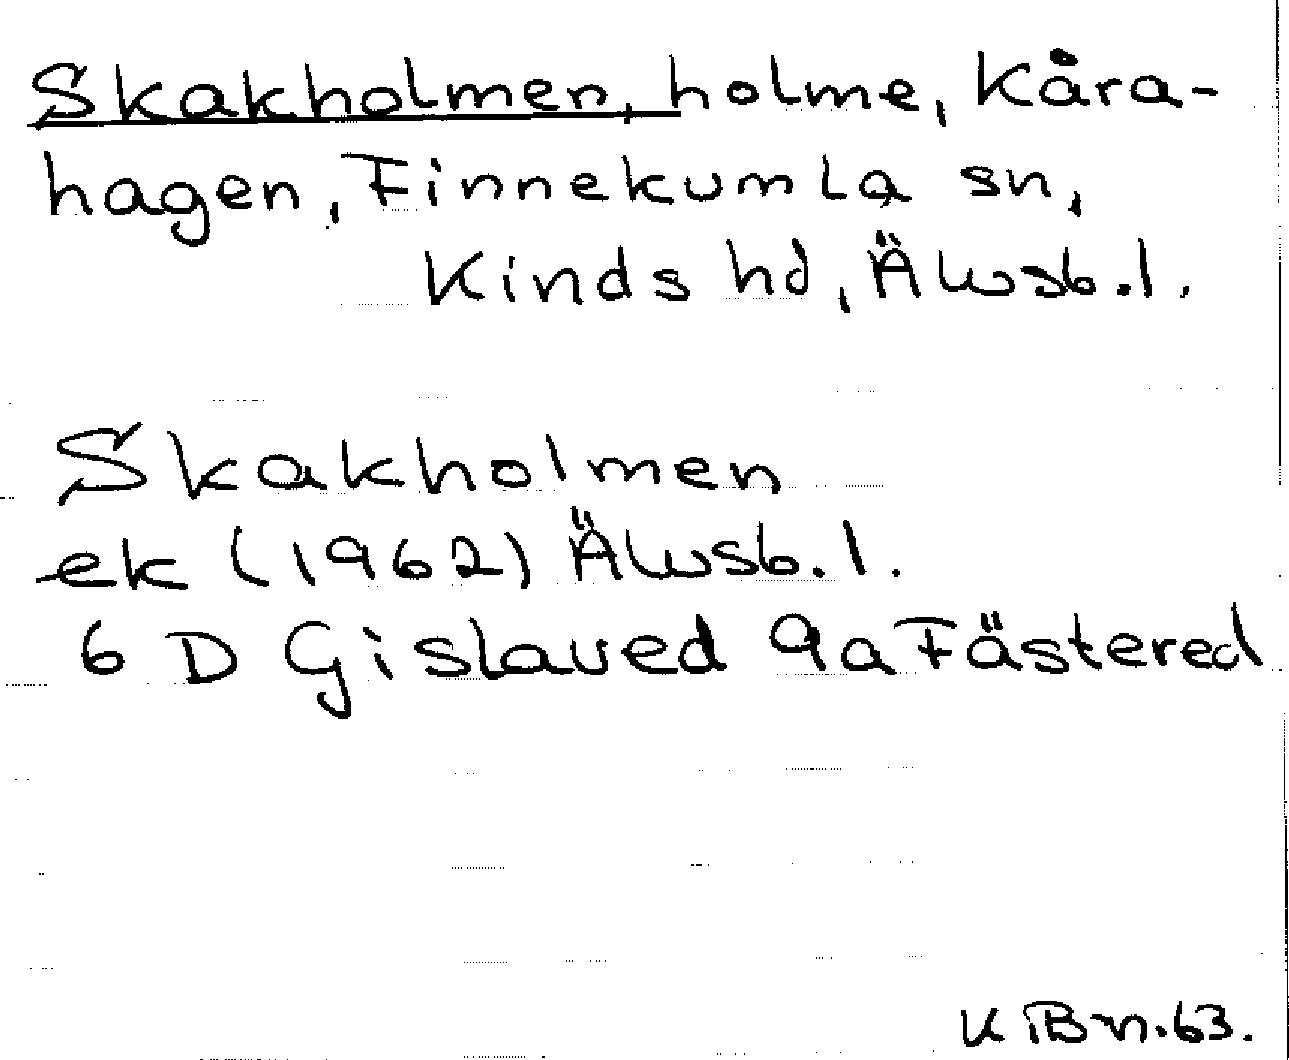 Skakholmen, holme, Kåra-
hagen, Finnekumla sn,
Kinds hd, Älvsb.l.
Skakholmen
ek (1962) Älvsb.l.
6 D Gislaved 9a Fästered
K Bn.63.